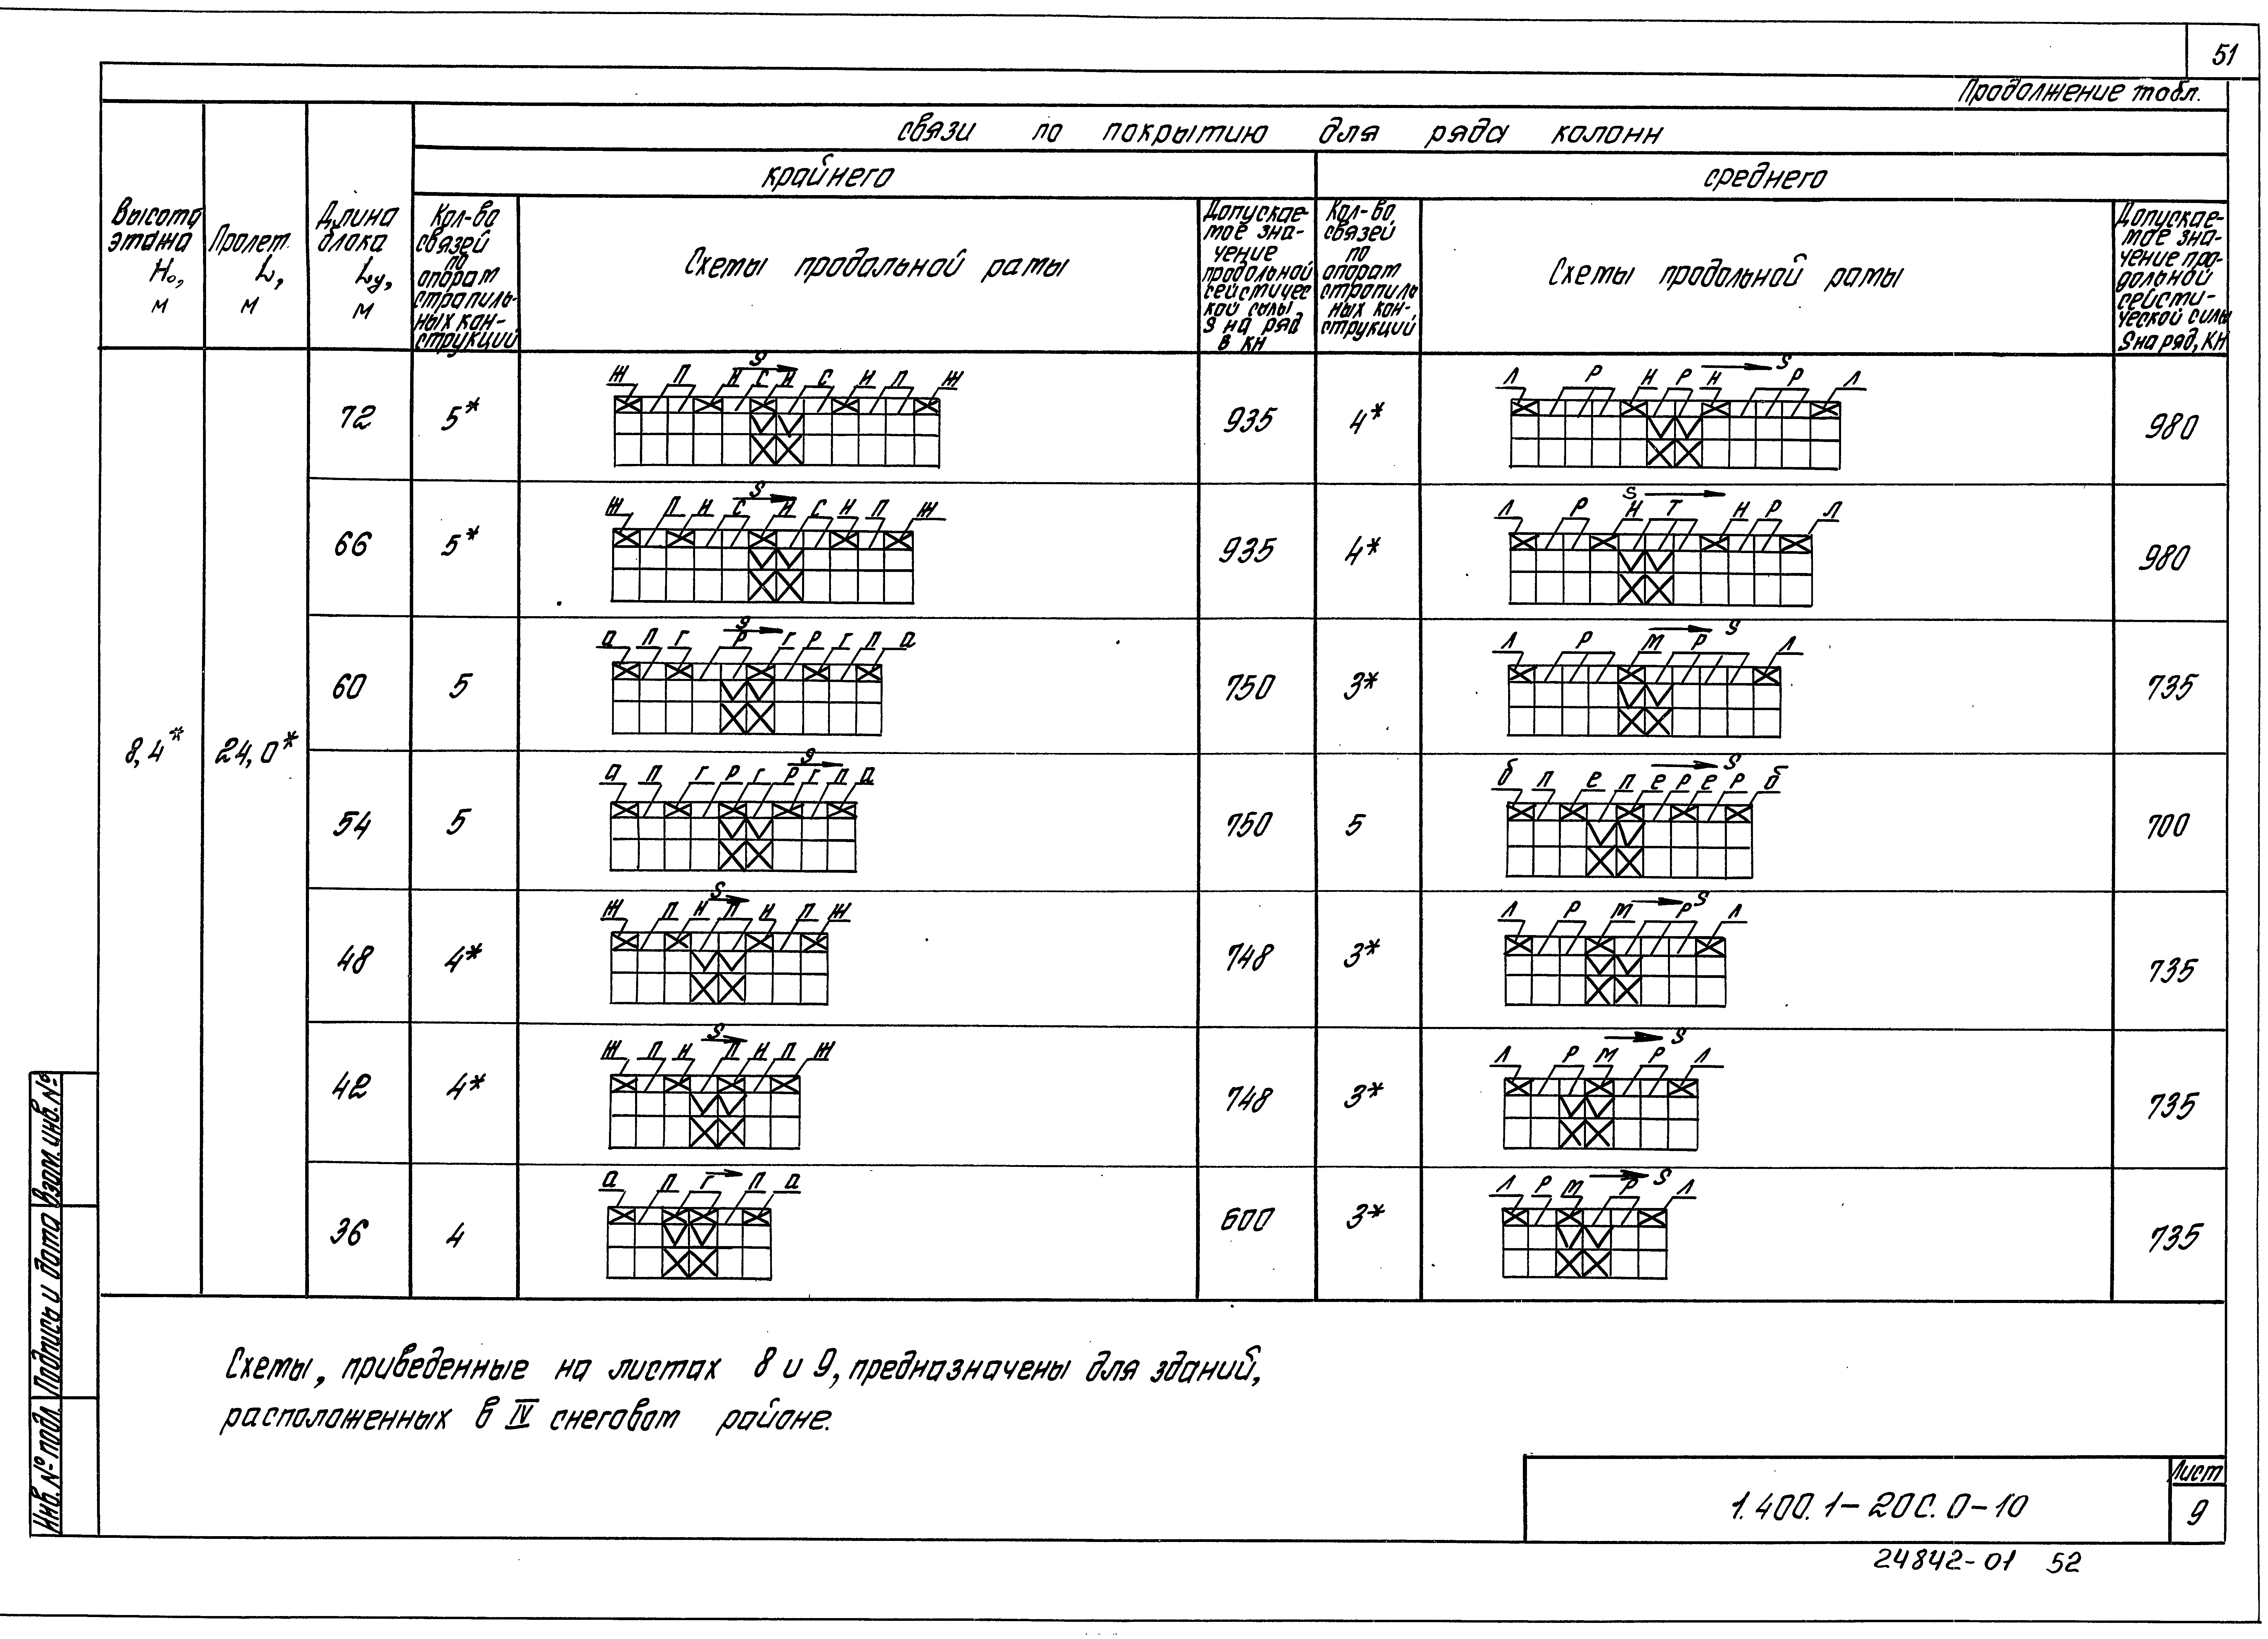 51
Продолжение табл.
связи по покрытию для ряда колонн
крайнего
среднего
Высота
этажа
H₀,
м
Пролет
L,
м
Длина
блока
Ly,
м
Кол-во
связей
по
опорам
стропиль-
ных кон-
струкций
Схемы продольной рамы
Допускае-
мое зна-
чение
продольной
сейсмичес
кой силы
S на ряд
в кн
Кол-во
связей
по
опорам
стропиль
ных кон-
струкций
Схемы продольной рамы
Допускае-
мое зна-
чение про-
дольной
сейсми-
ческой силы
S на ряд, КН
8,4* 24,0*
S
Ж П Н С Н С Н П Ж
S
Л Р Н Р Н Р Л
72 5* 935 4* 980
S
Ж П Н С Н С Н П Ж
S
Л Р Н Т Н Р Л
66 5* 935 4* 980
S
а П г Р г Р г П а
S
Л Р М Р Л
60 5 750 3* 735
S
а П г Р г Р г П а
S
б П е П е Р е Р б
54 5 750 5 700
S
Ж П Н П Н П Ж
S
Л Р М Р Л
48 4* 748 3* 735
S
Ж П Н П Н П Ж
S
Л Р М Р Л
42 4* 748 3* 735
а П г П а
S
Л Р М Р Л
36 4 600 3* 735
Схемы, приведенные на листах 8 и 9, предназначены для зданий,
расположенных в IV снеговом районе.
Инв. № подл. Подпись и дата Взам. инв. №
1.400.1-20С.0-10
Лист
9
24842-01 52